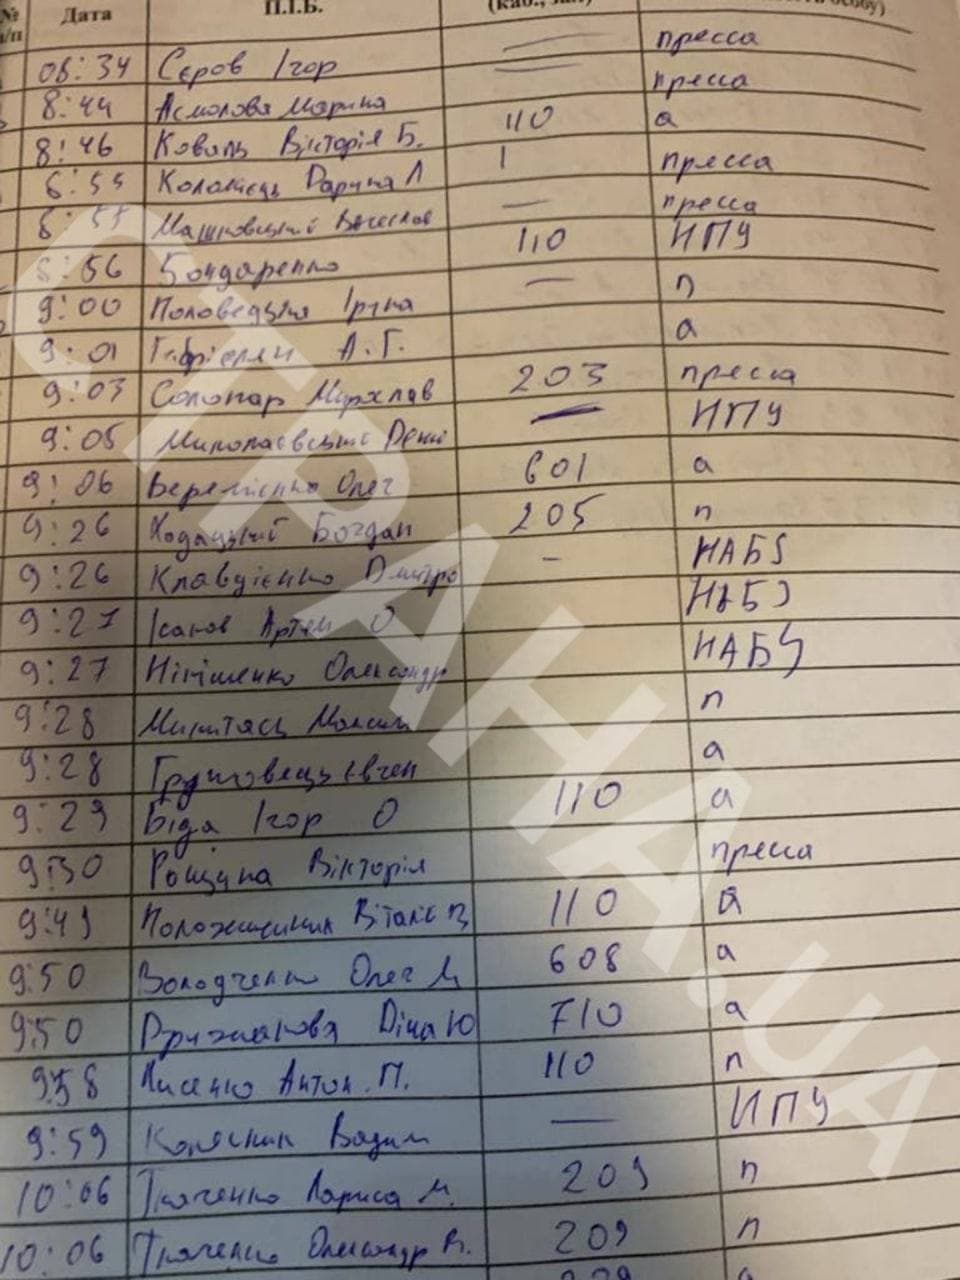 № Дата П.І.Б. (каб., зал)
п/п
08:34 Сєров Ігор — пресса
8:44 Асмолова Марина — пресса
8:46 Коваль Вікторія Б. 110 а
8:55 Коломієць Дарина Л 1 пресса
8:55 Машковський — пресса
8:56 Бондаренко 110 ИПУ
9:00 Половецька Ірина — п
9:01 А.Г. а
9:03 Солопар Мирослав 203 пресса
9:05 Миколаєвський Денис — ИПУ
9:06 Веремієнко Олег 601 а
9:26 Ходацький Богдан 205 п
9:26 Клавдієнко Дмитро - НАБУ
9:27 Ісаков Артем О НАБУ
9:27 Нікішенко Олександр НАБУ
9:28 Микитась Максим п
9:28 Грушовець Євген а
9:29 Біда Ігор О 110 а
9:30 Рощина Вікторія пресса
9:49 Положишник Віталій В 110 а
9:50 Володченко Олег М 608 а
9:50 Дрижакова Діна Ю 710 а
9:58 Лисенко Антон. П. 110 п
9:59 Колесник Вадим — ИПУ
10:06 Ткаченко Лариса М. 209 п
10:06 Ткаченко Олександр В. 209 п
СТРАНА.UA